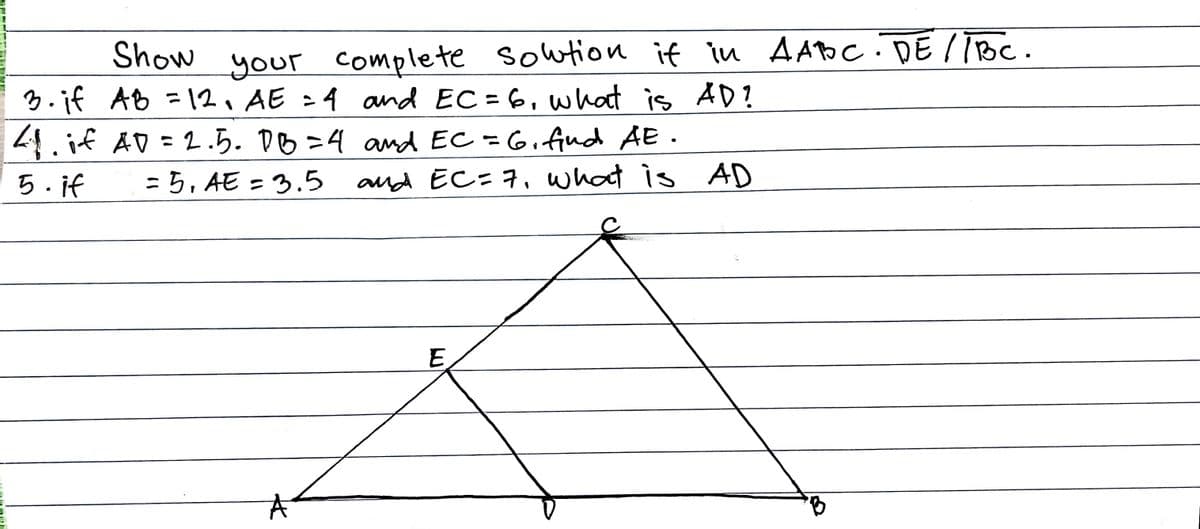 Show your complete solution if in ΔABC. DE // BC.
3. if AB = 12, AE = 4 and EC = 6, what is AD?
4. if AD = 2.5. DB = 4 and EC = 6, find AE.
5. if = 5, AE = 3.5 and EC = 7, what is AD
C
E
A
D
B